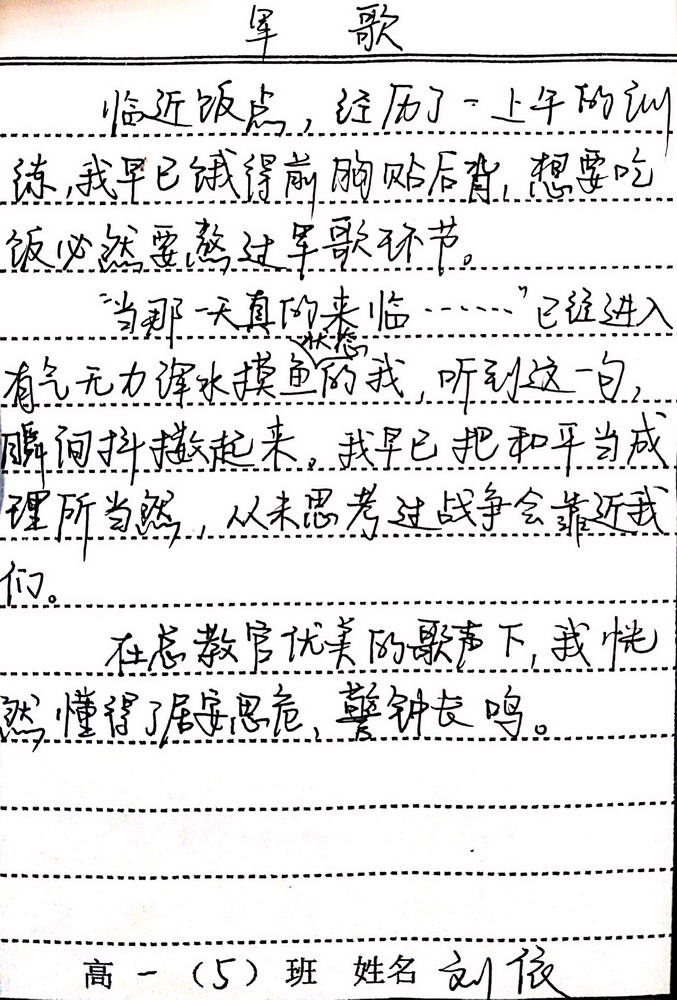 军 歌
临近饭点，经历了一上午的训
练，我早已饿得前胸贴后背，想要吃
饭必然要熬过军歌环节。
“当那一天真的来临……”已经进入
状态
有气无力浑水摸鱼的我，听到这一句，
瞬间抖擞起来。我早已把和平当成
理所当然，从未思考过战争会靠近我
们。
在总教官优美的歌声下，我恍
然懂得了居安思危，警钟长鸣。
高一（5）班 姓名 刘依